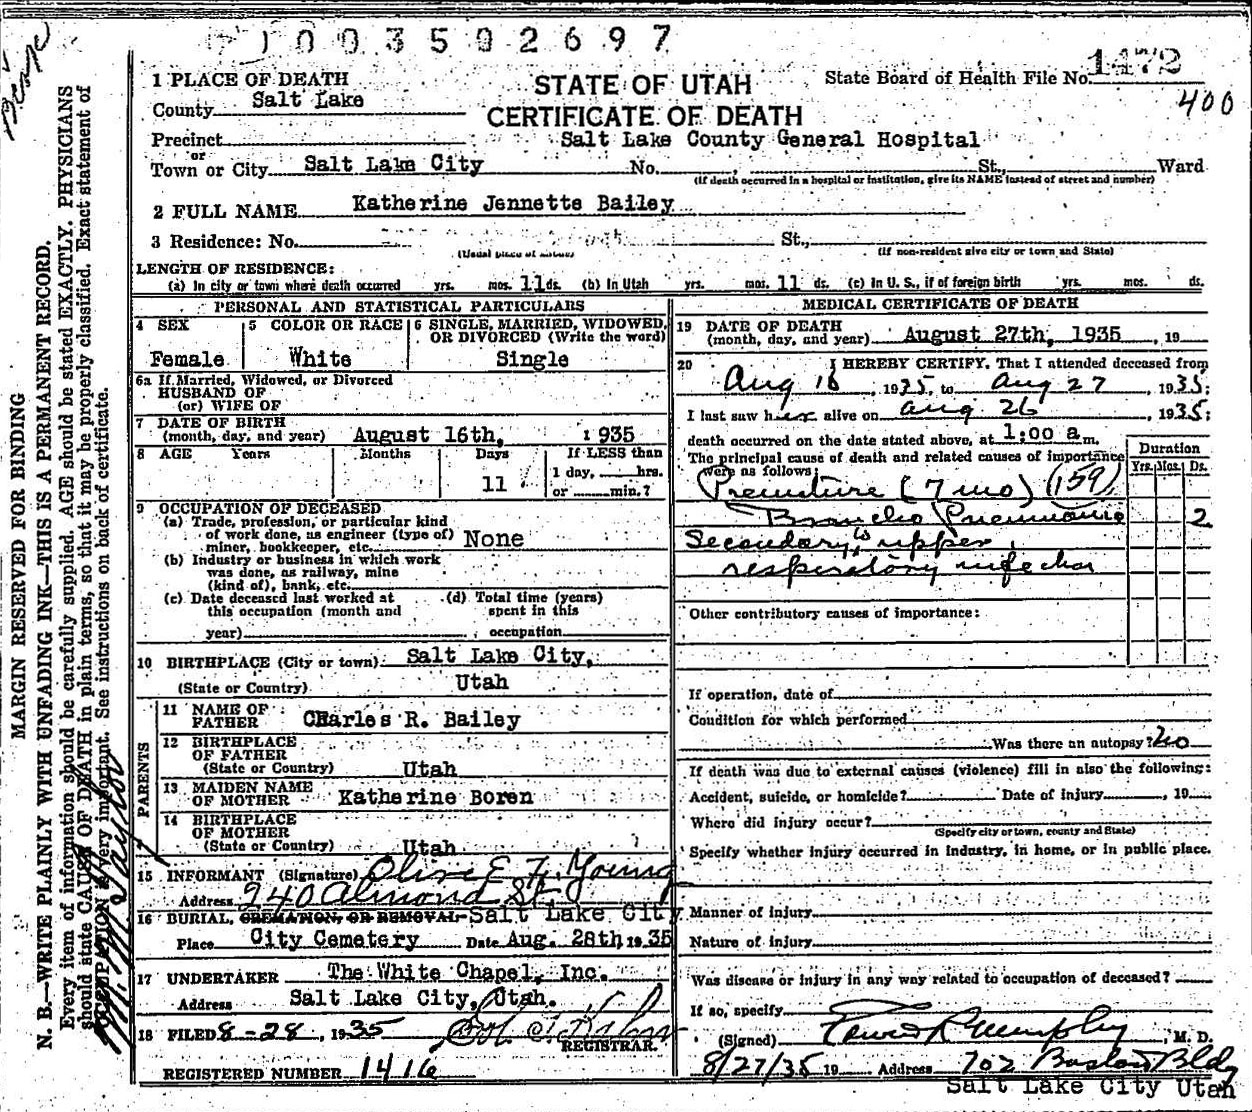 1003502697
1472
400
STATE OF UTAH
CERTIFICATE OF DEATH
State Board of Health File No. 1472
1 PLACE OF DEATH
County Salt Lake
Precinct
Salt Lake County General Hospital
or
Town or City Salt Lake City No. , St., Ward
(If death occurred in a hospital or institution, give its NAME instead of street and number)
2 FULL NAME Katherine Jennette Bailey
3 Residence: No. St.,
(Usual place of abode) (If non-resident give city or town and State)
LENGTH OF RESIDENCE:
(a) In city or town where death occurred yrs. mos. 11 ds. (b) In Utah yrs. mos. 11 ds. (c) In U. S., if of foreign birth yrs. mos. ds.
PERSONAL AND STATISTICAL PARTICULARS
4 SEX Female
5 COLOR OR RACE White
6 SINGLE, MARRIED, WIDOWED, OR DIVORCED (Write the word) Single
6a If Married, Widowed, or Divorced
HUSBAND OF
(or) WIFE OF
7 DATE OF BIRTH
(month, day, and year) August 16th, 1935
8 AGE Years Months Days If LESS than
11 1 day, hrs.
or min.?
9 OCCUPATION OF DECEASED
(a) Trade, profession, or particular kind
of work done, as engineer (type of)
miner, bookkeeper, etc. None
(b) Industry or business in which work
was done, as railway, mine
(kind of), bank, etc.
(c) Date deceased last worked at
this occupation (month and
year)
(d) Total time (years)
spent in this
occupation
10 BIRTHPLACE (City or town) Salt Lake City,
(State or Country) Utah
PARENTS
11 NAME OF
FATHER Charles R. Bailey
12 BIRTHPLACE
OF FATHER
(State or Country) Utah
13 MAIDEN NAME
OF MOTHER Katherine Boren
14 BIRTHPLACE
OF MOTHER
(State or Country) Utah
15 INFORMANT (Signature) Olive E. F. Young
Address 240 Almond St
16 BURIAL, CREMATION, OR REMOVAL Salt Lake City
Place City Cemetery Date Aug. 28th 1935
17 UNDERTAKER The White Chapel, Inc.
Address Salt Lake City, Utah.
18 FILED 8-28, 1935
REGISTRAR.
REGISTERED NUMBER 1416
MEDICAL CERTIFICATE OF DEATH
19 DATE OF DEATH
(month, day, and year) August 27th, 1935, 19
20 I HEREBY CERTIFY, That I attended deceased from
Aug 16, 1935, to Aug 27, 1935;
I last saw her alive on Aug 26, 1935;
death occurred on the date stated above, at 1:00 a m.
The principal cause of death and related causes of importance
were as follows:
Duration
Yrs. Mos. Ds.
Premature (7 mo) (159)
Broncho Pneumonia 2
Secondary to upper
respiratory infection
Other contributory causes of importance:
If operation, date of
Condition for which performed
Was there an autopsy? No
If death was due to external causes (violence) fill in also the following:
Accident, suicide, or homicide? Date of injury , 19
Where did injury occur?
(Specify city or town, county and State)
Specify whether injury occurred in industry, in home, or in public place.
Manner of injury
Nature of injury
Was disease or injury in any way related to occupation of deceased?
If so, specify
(Signed) Murphy, M. D.
8/27/35 19 Address 702 Boston Bldg
Salt Lake City Utah
MARGIN RESERVED FOR BINDING
N. B.—WRITE PLAINLY WITH UNFADING INK—THIS IS A PERMANENT RECORD.
Every item of information should be carefully supplied. AGE should be stated EXACTLY. PHYSICIANS
should state CAUSE OF DEATH in plain terms, so that it may be properly classified. Exact statement of
OCCUPATION is very important. See instructions on back of certificate.